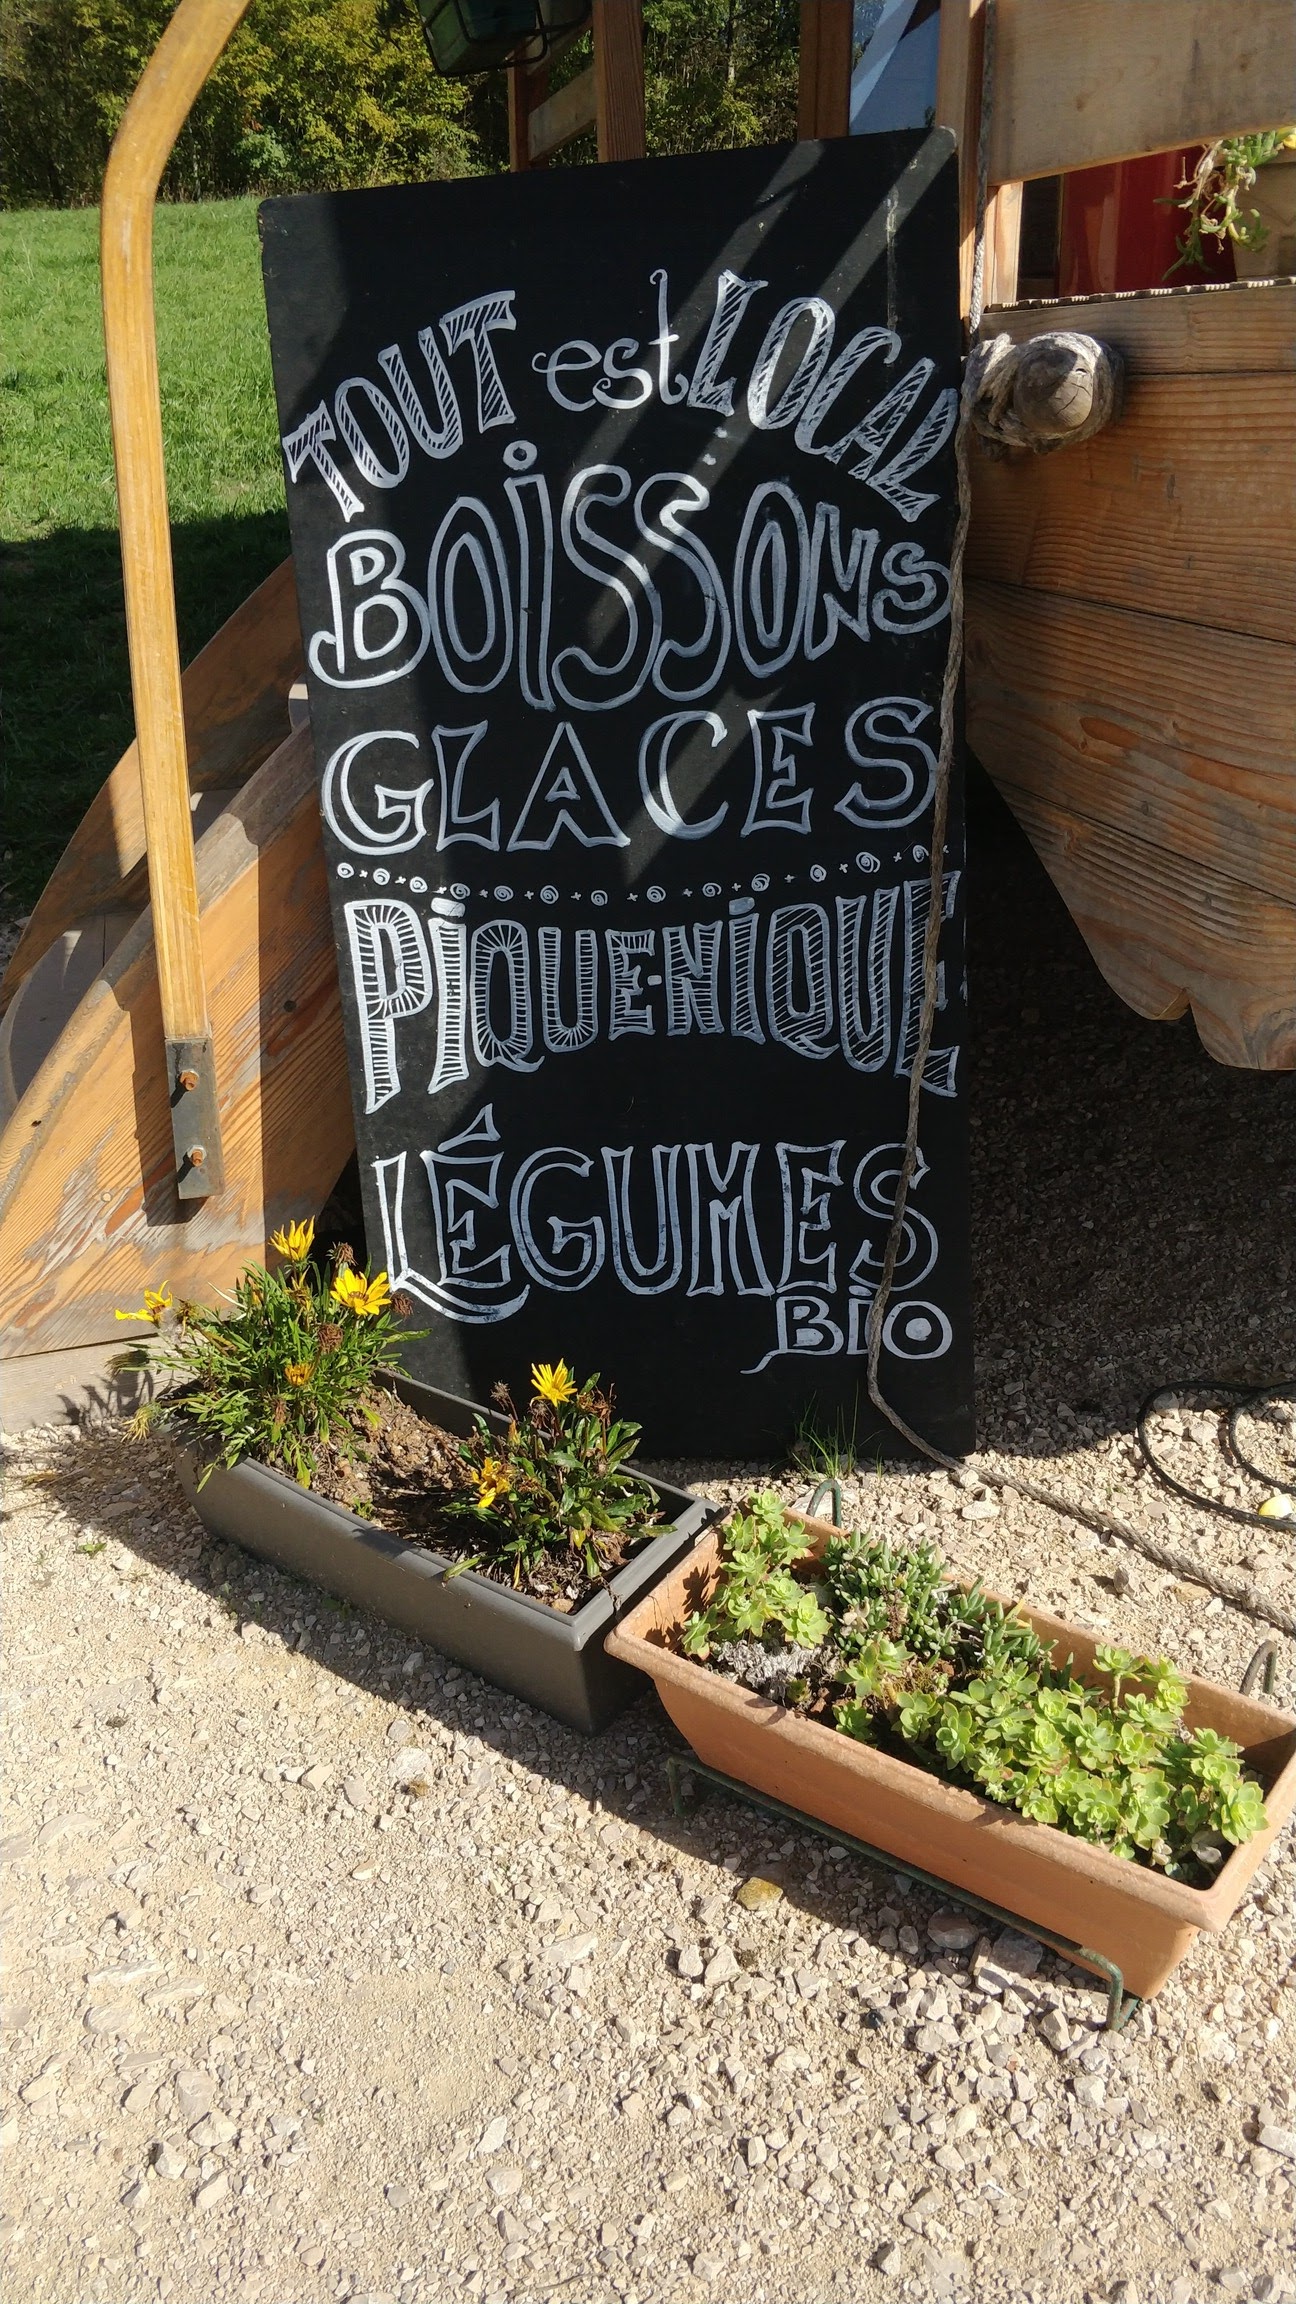 TOUT est LOCAL
BOiSSONS
GLACES
PiQUE-NiQUE
LÉGUMES
BiO